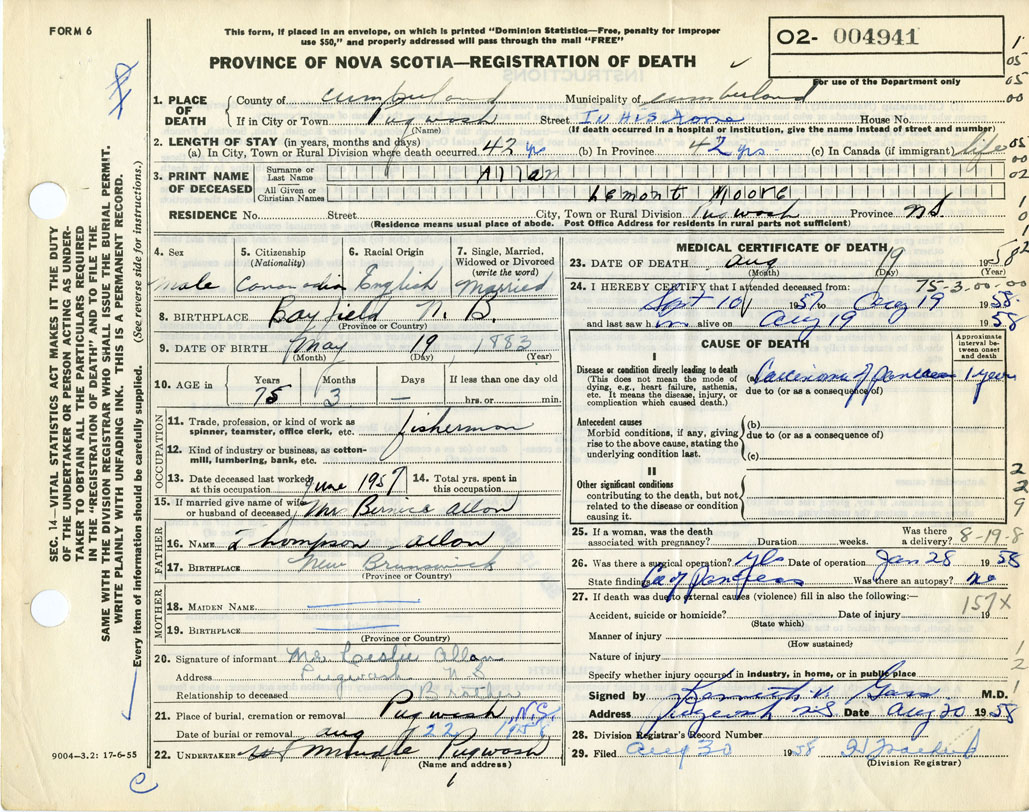 FORM 6
This form, if placed in an envelope, on which is printed "Dominion Statistics—Free, penalty for improper
use $50," and properly addressed will pass through the mail "FREE"
O2- 004941
For use of the Department only
PROVINCE OF NOVA SCOTIA—REGISTRATION OF DEATH
1. PLACE OF DEATH
County of Cumberland Municipality of Cumberland
If in City or Town Pugwash Street IN HIS Home House No.
(Name) (If death occurred in a hospital or institution, give the name instead of street and number)
2. LENGTH OF STAY (in years, months and days)
(a) In City, Town or Rural Division where death occurred 42 yrs (b) In Province 42 yrs. (c) In Canada (if immigrant) life
3. PRINT NAME OF DECEASED
Surname or Last Name Allan
All Given or Christian Names Lemont Moore
RESIDENCE No. Street City, Town or Rural Division Pugwash Province N.S.
(Residence means usual place of abode. Post Office Address for residents in rural parts not sufficient)
4. Sex
Male
5. Citizenship
(Nationality)
Canadian
6. Racial Origin
English
7. Single, Married,
Widowed or Divorced
(write the word)
Married
8. BIRTHPLACE Bayfield N. B.
(Province or Country)
9. DATE OF BIRTH May 19 1883
(Month) (Day) (Year)
10. AGE in Years Months Days If less than one day old
75 3 — hrs. or min.
OCCUPATION
11. Trade, profession, or kind of work as
spinner, teamster, office clerk, etc. fisherman
12. Kind of industry or business, as cotton-
mill, lumbering, bank, etc.
13. Date deceased last worked
at this occupation June 1957
14. Total yrs. spent in
this occupation
15. If married give name of wife
or husband of deceased Mrs Bernice Allan
FATHER
16. NAME Thompson Allan
17. BIRTHPLACE New Brunswick
(Province or Country)
MOTHER
18. MAIDEN NAME
19. BIRTHPLACE
(Province or Country)
20. Signature of informant Mr. Leslie Allan
Address Pugwash N S
Relationship to deceased Brother
21. Place of burial, cremation or removal Pugwash, N.S.
Date of burial or removal Aug 22 1958
22. UNDERTAKER Pugwash
(Name and address)
MEDICAL CERTIFICATE OF DEATH
23. DATE OF DEATH Aug 19 1958
(Month) (Day) (Year)
75-3-00-00
24. I HEREBY CERTIFY that I attended deceased from:
Sept 10 1957 to Aug 19 1958
and last saw him alive on Aug 19 1958
CAUSE OF DEATH
Approximate
interval be-
tween onset
and death
I
Disease or condition directly leading to death
(This does not mean the mode of
dying, e.g., heart failure, asthenia,
etc. It means the disease, injury, or
complication which caused death.)
(a) Carcinoma of Pancreas 1 year
due to (or as a consequence of)
Antecedent causes
Morbid conditions, if any, giving
rise to the above cause, stating the
underlying condition last.
(b)
due to (or as a consequence of)
(c)
II
Other significant conditions
contributing to the death, but not
related to the disease or condition
causing it.
25. If a woman, was the death
associated with pregnancy? Duration weeks. Was there
a delivery?
8-19-8
26. Was there a surgical operation? Yes Date of operation Jan 28 1958
State findings Ca of Pancreas Was there an autopsy? no
27. If death was due to external causes (violence) fill in also the following:—
157X
Accident, suicide or homicide? Date of injury 19
(State which)
Manner of injury
(How sustained)
Nature of injury
Specify whether injury occurred in industry, in home, or in public place
Signed by Kenneth V. Gass M.D.
Address Pugwash N S Date Aug 20 1958
28. Division Registrar's Record Number
29. Filed Aug 30 1958
(Division Registrar)
SEC. 14—VITAL STATISTICS ACT MAKES IT THE DUTY
OF THE UNDERTAKER OR PERSON ACTING AS UNDER-
TAKER TO OBTAIN ALL THE PARTICULARS REQUIRED
IN THE "REGISTRATION OF DEATH" AND TO FILE THE
SAME WITH THE DIVISION REGISTRAR WHO SHALL ISSUE THE BURIAL PERMIT.
WRITE PLAINLY WITH UNFADING INK. THIS IS A PERMANENT RECORD.
Every item of information should be carefully supplied. (See reverse side for instructions.)
9004—3.2: 17-6-55
C
1
05
05
00
05
00
02
1
0
1
02
2
2
9
1
2
1